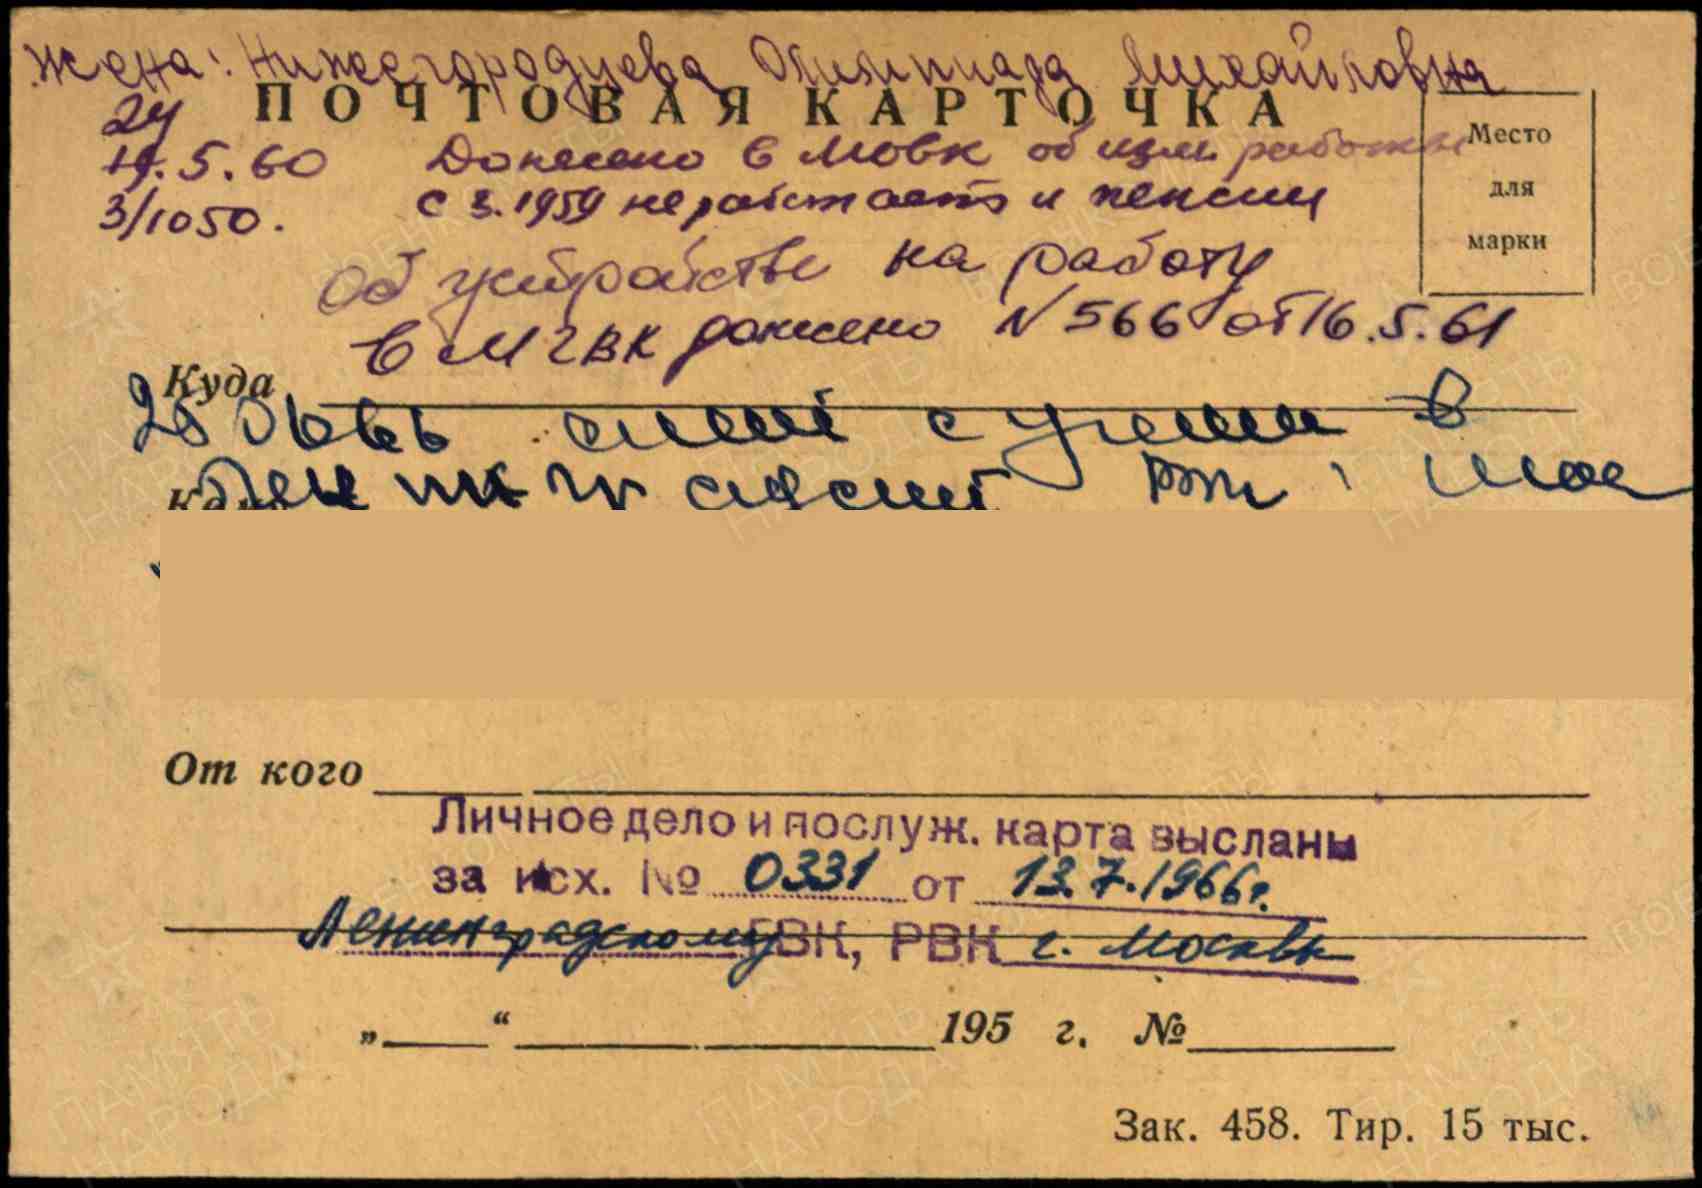 Жена: Нижегородцева Олимпиада Михайловна
ПОЧТОВАЯ КАРТОЧКА
Место
для
марки
24
19.5.60 Донесено в МОВК об изм. работы
3/1050. с 3.1959 не работает и пенсии
Об устройстве на работу
в МГВК донесено N 566 от 16.5.61
Куда
с
в
От кого
Личное дело и послуж. карта высланы
за исх. № 0331 от 13.7.1966г.
Ленинградскому ГВК, РВК г. Москвы
„ “ 195 г. №
Зак. 458. Тир. 15 тыс.
ПАМЯТЬ
НАРОДА